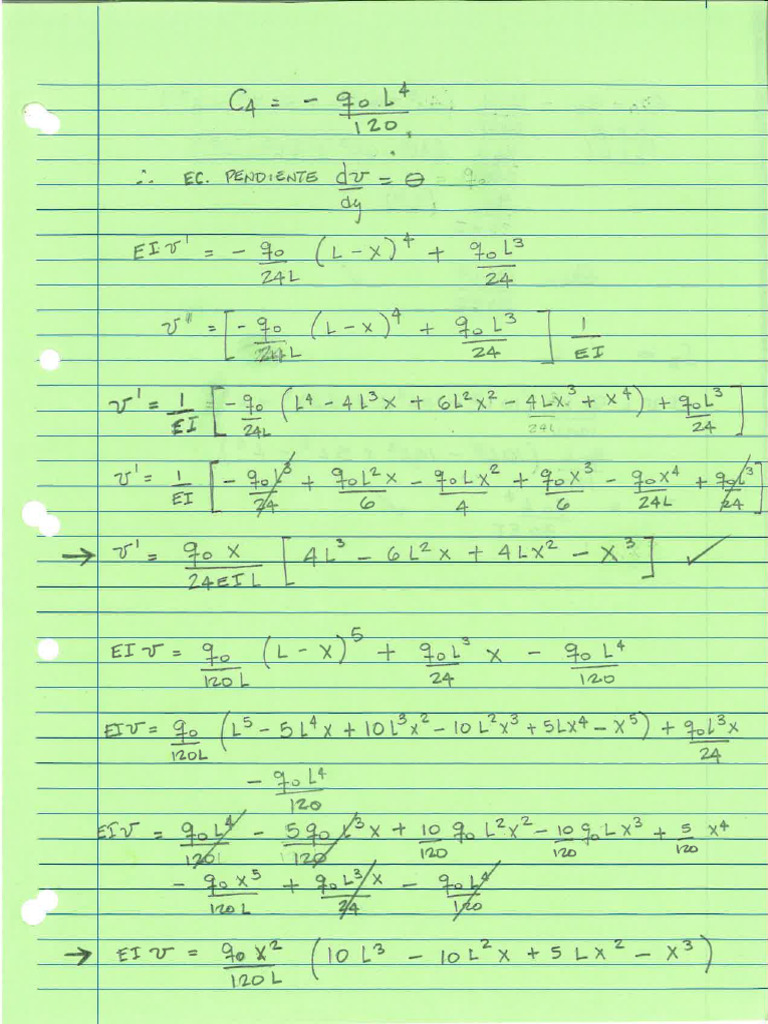 C₄ = - q₀L⁴/120
∴ EC. PENDIENTE dv/dy = θ
EIv' = - q₀/24L (L-x)⁴ + q₀L³/24
v' = [- q₀/24L (L-x)⁴ + q₀L³/24] 1/EI
v' = 1/EI [- q₀/24L (L⁴ - 4L³x + 6L²x² - 4Lx³ + x⁴) + q₀L³/24]
v' = 1/EI [- q₀L³/24 + q₀L²x/6 - q₀Lx²/4 + q₀x³/6 - q₀x⁴/24L + q₀L³/24]
→ v' = q₀x/24EIL [4L³ - 6L²x + 4Lx² - x³] ✓
EIv = q₀/120L (L-x)⁵ + q₀L³/24 x - q₀L⁴/120
EIv = q₀/120L (L⁵ - 5L⁴x + 10L³x² - 10L²x³ + 5Lx⁴ - x⁵) + q₀L³x/24
- q₀L⁴/120
EIv = q₀L⁴/120L - 5q₀L³x/120 + 10/120 q₀L²x² - 10/120 q₀Lx³ + 5/120 x⁴
- q₀x⁵/120L + q₀L³x/24 - q₀L⁴/120
→ EIv = q₀x²/120L (10L³ - 10L²x + 5Lx² - x³)